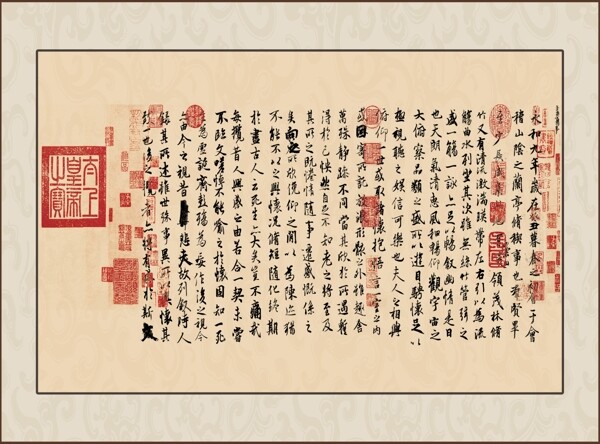 永和九年歲在癸丑暮春之初會于會
稽山陰之蘭亭脩稧事也羣賢畢
至少長咸集此地有崇山峻領茂林脩
竹又有清流激湍暎帶左右引以為流
觴曲水列坐其次雖無絲竹管弦之
盛一觴一詠亦足以暢敘幽情是日
也天朗氣清惠風和暢仰觀宇宙之
大俯察品類之盛所以遊目騁懷足以
極視聽之娛信可樂也夫人之相與
俯仰一世或取諸懷抱悟言一室之內
或因寄所託放浪形骸之外雖趣舍
萬殊靜躁不同當其欣於所遇暫
得於己怏然自足不知老之將至及
其所之既惓情隨事遷感慨係之
矣向之所欣俛仰之間以為陳迹猶
不能不以之興懷況脩短隨化終期
於盡古人云死生亦大矣豈不痛哉
每攬昔人興感之由若合一契未嘗
不臨文嗟悼不能喻之於懷固知一死
生為虛誕齊彭殤為妄作後之視今
亦由今之視昔悲夫故列敘時人
錄其所述雖世殊事異所以興懷其
致一也後之攬者亦將有感於斯
太上皇帝之寶